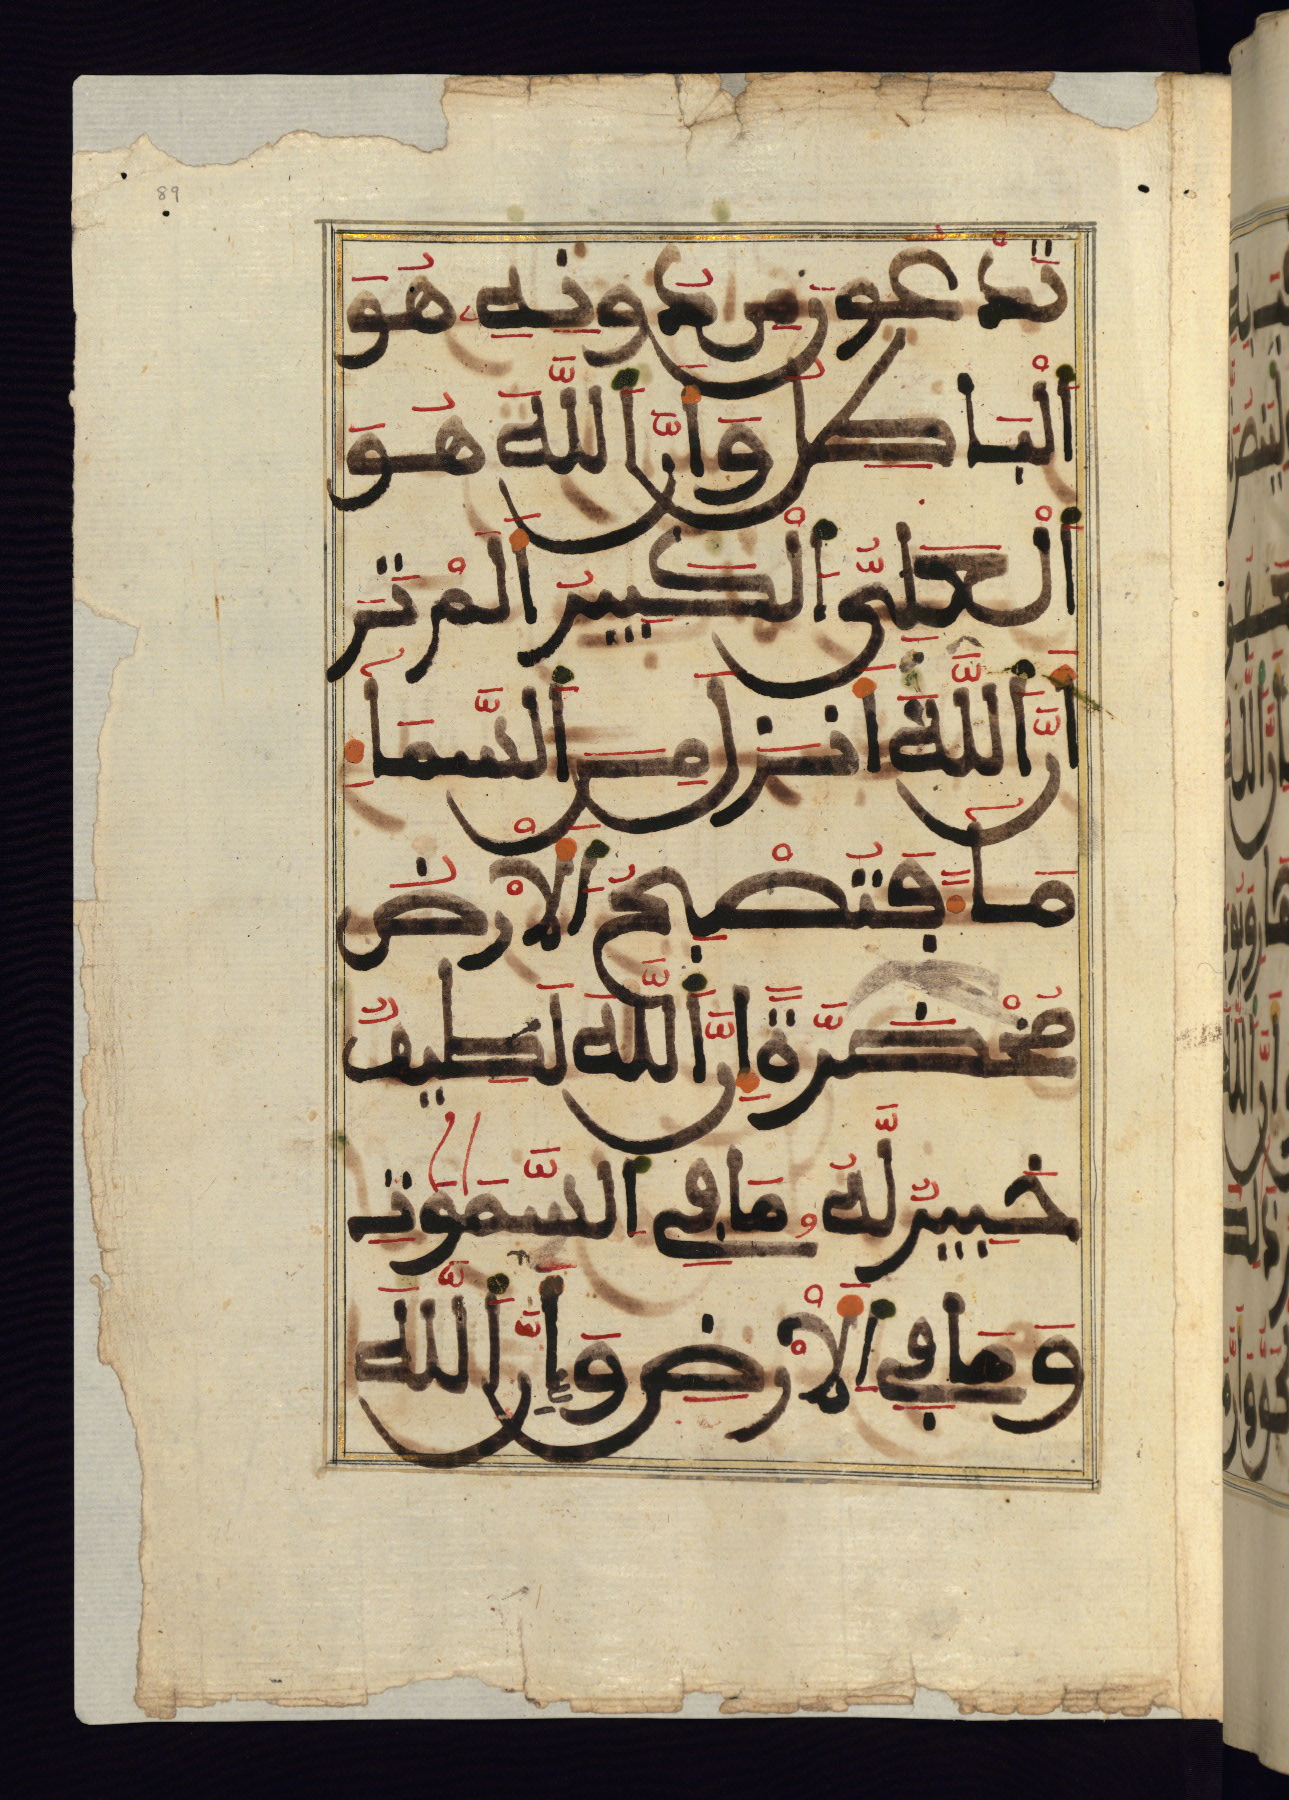 89
تَدْعُونَ مِن دُونِهِۦ هُوَ
اَ۬لْبَٰطِلُ وَأَنَّ اَ۬للَّهَ هُوَ
اَ۬لْعَلِىُّ اُ۬لْكَبِيرُ أَلَمْ تَرَ
أَنَّ اَ۬للَّهَ أَنزَلَ مِنَ اَ۬لسَّمَآءِ
مَآءً فَتُصْبِحُ اُ۬لْأَرْضُ
مُخْضَرَّةً إِنَّ اَ۬للَّهَ لَطِيفٌ
خَبِيرٌ لَّهُۥ مَا فِى اِ۬لسَّمَٰوَٰتِ
وَمَا فِى اِ۬لْأَرْضِ وَإِنَّ اَ۬للَّهَ